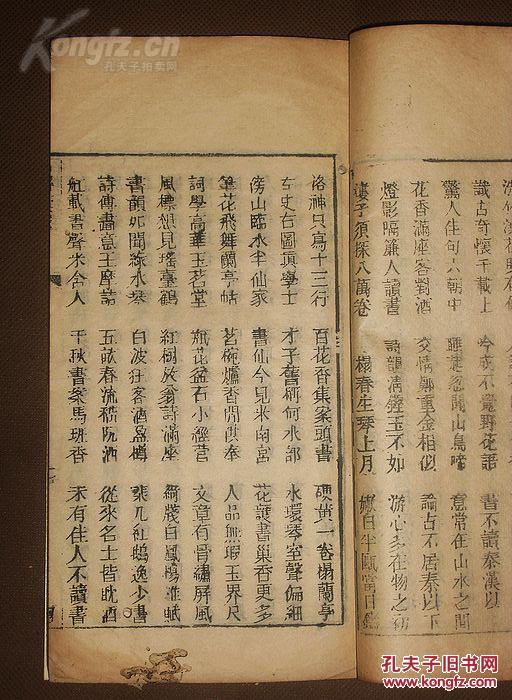 Kongfz.cn
孔夫子拍卖网
識古奇懷千載上 書不讀秦漢以
驚人佳句六朝中 忽聞山鳥啼 意常在山水之間
花香滿座客對酒 交情鄭重金相似 論古不居秦以下
燈影隔簾人讀書 詩韻清鏘玉不如 游心多在物之初
須探八萬卷 榻春生琴上月
洛神只寫十三行 百花香集案頭書 硬黃一卷榻蘭亭
左史右圖項學士 才子舊稱何水部 水環琴室聲偏細
傍山臨水半仙家 書仙今見米南宮 花護書巢香更多
筆花飛舞蘭亭帖 茗碗爐香閒供奉 人品無瑕玉界尺
詞學高華玉茗堂 瓶花盆石小經營 文章有骨繡屏風
風標想見瑤臺鶴 紅樹放翁詩滿座 牋白鳳楊雄賦
書韻如聞綠水琴 白波狂客酒盈樽 棐几紅鵝逸少書
詩傳畫意王摩詰 五畝春流阮酒 從來名士皆耽酒
虹載書聲米舍人 千秋書案馬班香 未有佳人不讀書
孔夫子旧书网
www.kongfz.com